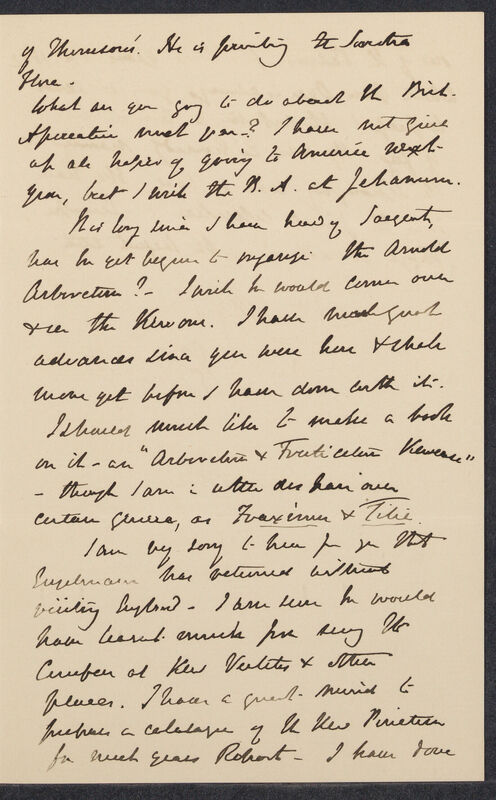 of Thomson's. He is printing the Socotra
Flora.
What are you going to do about the Brit.
Association next year? I have not given
up all hopes of going to America next
year, but I wish the B. A. at Jehannum.
It is long since I have heard of Sargent,
has he yet begun to organize the Arnold
Arboretum? — I wish he would come over
& see the Kew one. I have made great
advances since you were here & shall
more yet before I have done with it.
I should much like to make a book
on it — an "Arboretum & Fruticetum Kewense"
— though I am in utter despair over
certain genera, as Fraxinus & Tilia.
I am very sorry to hear from you that
Engelmann has returned without
visiting England — I am sure he would
have learnt much from seeing the
Coniferae at Kew Veitches & other
places. I have a great mind to
prepare a catalogue of the Kew Pinetum
for next years Report — I have done